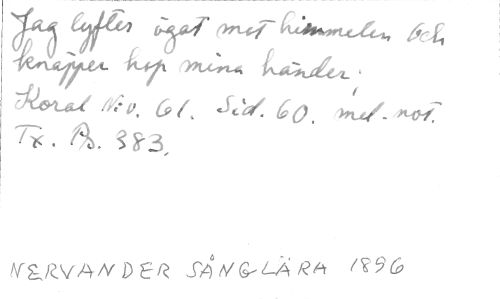 Jag lyfter ögat mot himmelen och
knäpper hop mina händer;
Koral N:o. 61. Sid. 60. mel. not.
Tx. Ps. 383.
NERVANDER SÅNGLÄRA 1896